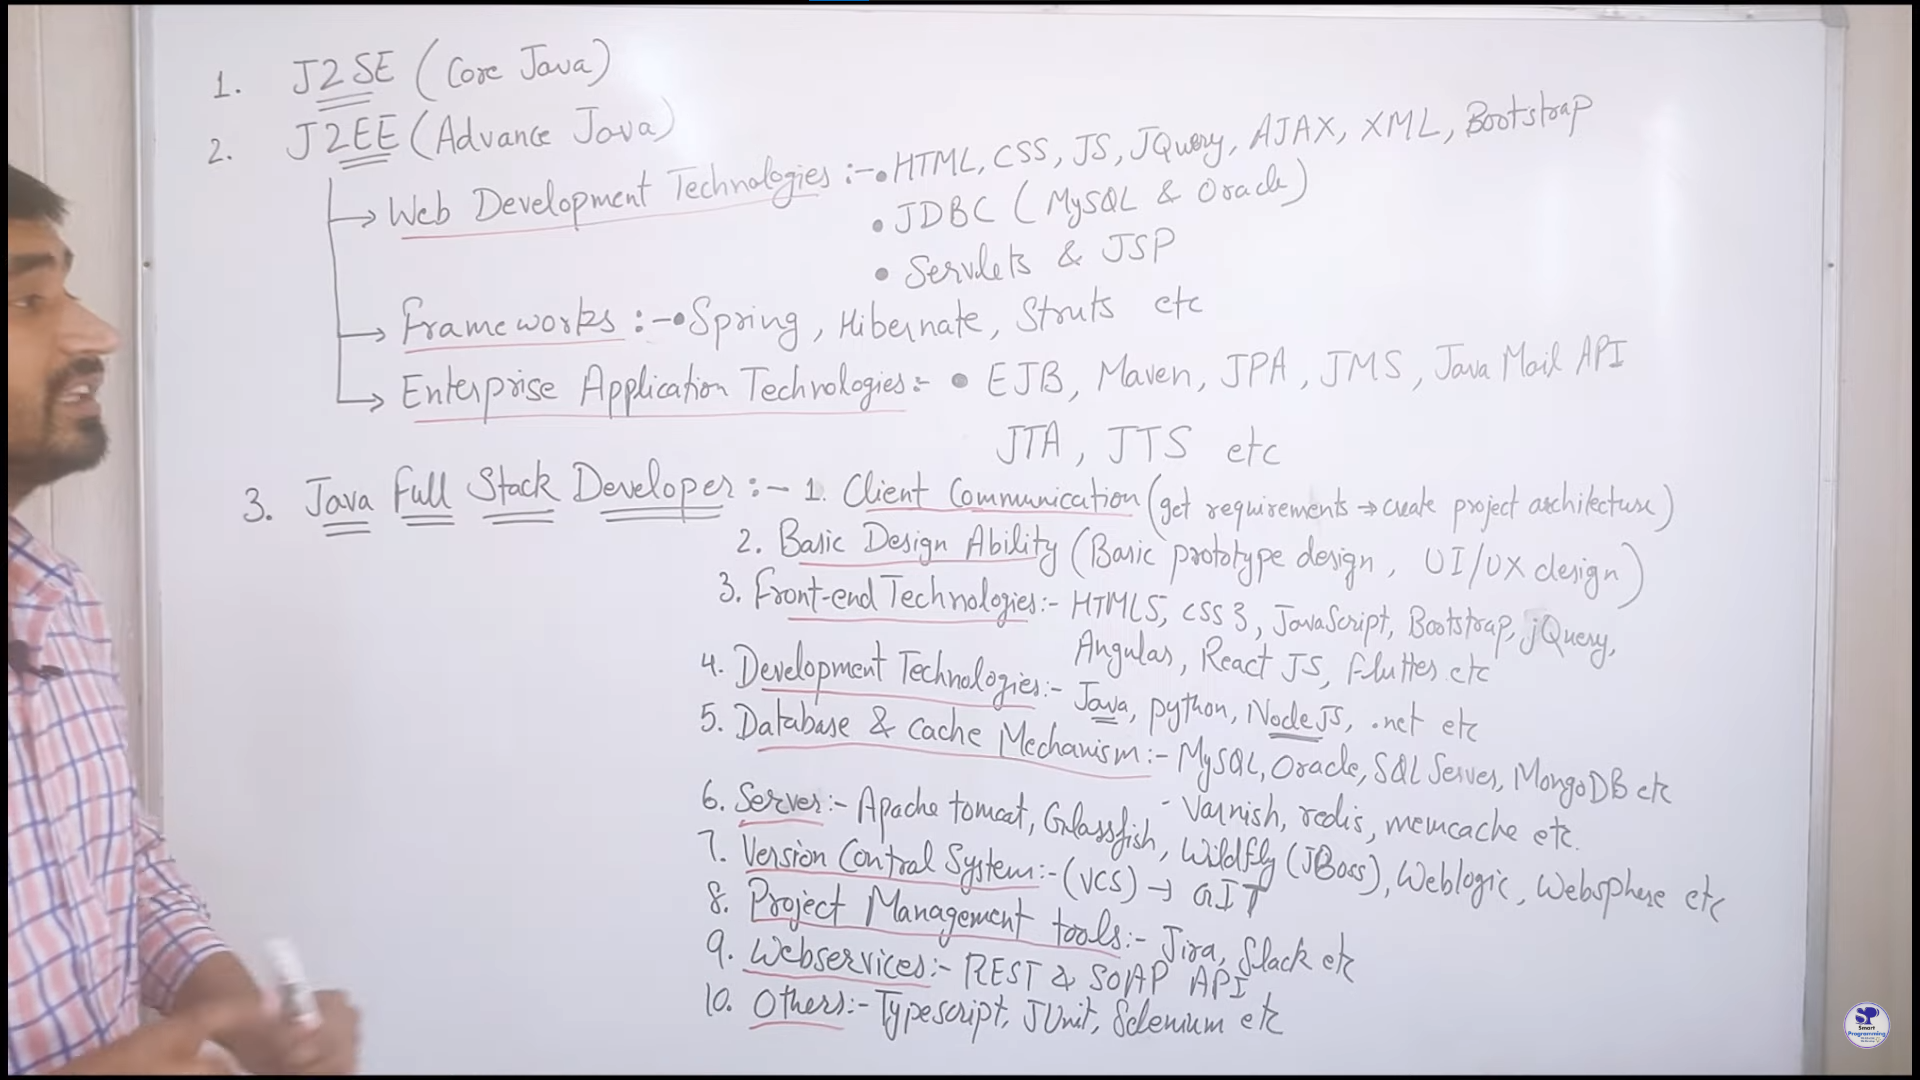 1. J2SE (Core Java)
2. J2EE (Advance Java)
Web Development Technologies :- • HTML, CSS, JS, JQuery, AJAX, XML, Bootstrap
• JDBC (MySQL & Oracle)
• Servlets & JSP
Frameworks :- • Spring, Hibernate, Struts etc
Enterprise Application Technologies :- • EJB, Maven, JPA, JMS, Java Mail API
JTA, JTS etc
3. Java Full Stack Developer :- 1. Client Communication (get requirements → create project architecture)
2. Basic Design Ability (Basic prototype design, UI/UX design)
3. Front-end Technologies :- HTML5, CSS3, JavaScript, Bootstrap, jQuery,
Angular, React JS, Flutter etc
4. Development Technologies :- Java, python, NodeJS, .net etc
5. Database & Cache Mechanism :- MySQL, Oracle, SQL Server, MongoDB etc
- Varnish, redis, memcache etc.
6. Server :- Apache tomcat, Glassfish, Wildfly (JBoss), Weblogic, Websphere etc
7. Version Control System :- (VCS) → GIT
8. Project Management tools :- Jira, Slack etc
9. Webservices :- REST & SOAP API
10. Others :- Typescript, JUnit, Selenium etc
SP
Smart
Programming